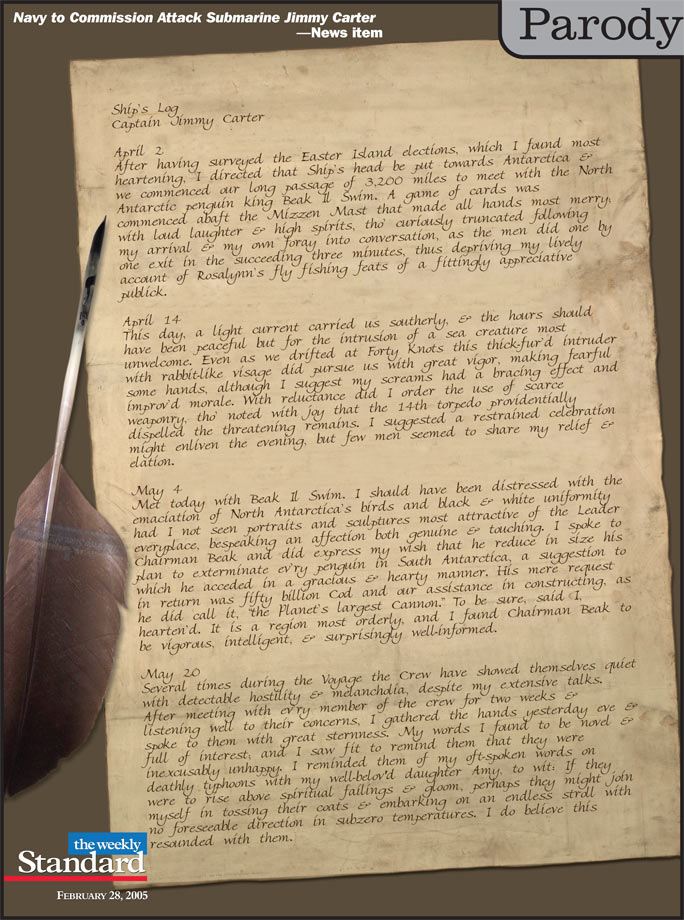 Navy to Commission Attack Submarine Jimmy Carter
—News item
Parody
Ship's Log
Captain Jimmy Carter
April 2
After having surveyed the Easter Island elections, which I found most
heartening, I directed that Ship's head be put towards Antarctica &
we commenced our long passage of 3,200 miles to meet with the North
Antarctic penguin king Beak Il Swim. A game of cards was
commenced abaft the Mizzen Mast that made all hands most merry,
with loud laughter & high spirits, tho' curiously truncated following
my arrival & my own foray into conversation, as the men did one by
one exit in the succeeding three minutes, thus depriving my lively
account of Rosalynn's fly fishing feats of a fittingly appreciative
publick.
April 14
This day, a light current carried us southerly, & the hours should
have been peaceful but for the intrusion of a sea creature most
unwelcome. Even as we drifted at Forty Knots this thick-fur'd intruder
with rabbit-like visage did pursue us with great vigor, making fearful
some hands, although I suggest my screams had a bracing effect and
improv'd morale. With reluctance did I order the use of scarce
weaponry, tho' noted with joy that the 14th torpedo providentially
dispelled the threatening remains. I suggested a restrained celebration
might enliven the evening, but few men seemed to share my relief &
elation.
May 4
Met today with Beak Il Swim. I should have been distressed with the
emaciation of North Antarctica's birds and black & white uniformity
had I not seen portraits and sculptures most attractive of the Leader
everyplace, bespeaking an affection both genuine & touching. I spoke to
Chairman Beak and did express my wish that he reduce in size his
plan to exterminate ev'ry penguin in South Antarctica, a suggestion to
which he acceded in a gracious & hearty manner. His mere request
in return was fifty billion Cod and our assistance in constructing, as
he did call it, "the Planet's largest Cannon." To be sure, said I,
hearten'd. It is a region most orderly, and I found Chairman Beak to
be vigorous, intelligent, & surprisingly well-informed.
May 20
Several times during the Voyage the Crew have showed themselves quiet
with detectable hostility & melancholia, despite my extensive talks.
After meeting with ev'ry member of the crew for two weeks &
listening well to their concerns, I gathered the hands yesterday eve &
spoke to them with great sternness. My words I found to be novel &
full of interest, and I saw fit to remind them that they were
inexcusably unhappy. I reminded them of my oft-spoken words on
deathly typhoons with my well-belov'd daughter Amy, to wit: If they
were to rise above spiritual failings & gloom, perhaps they might join
myself in tossing their coats & embarking on an endless stroll with
no foreseeable direction in subzero temperatures. I do believe this
resounded with them.
the weekly
Standard
FEBRUARY 28, 2005